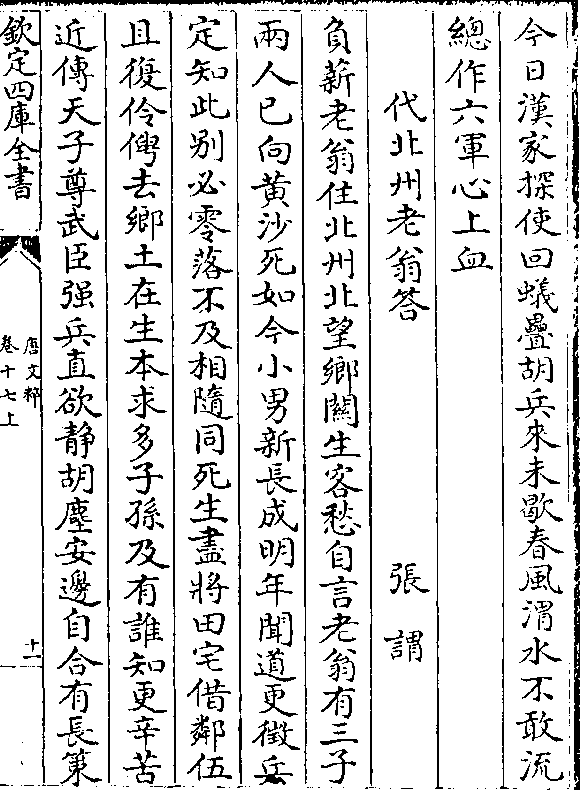 今日漢家探使回蟻疊胡兵來未歇春風渭水不敢流
總作六軍心上血
代北州老翁答 張謂
負薪老翁住北州北望鄉關生客愁自言老翁有三子
兩人已向黄沙死如今小男新長成明年聞道更徵兵
定知此别必零落不及相隨同死生盡將田宅借鄰伍
且復伶俜去鄉土在生本求多子孫及有誰知更辛苦
近傳天子尊武臣强兵直欲静胡塵安邊自合有長策
欽定四庫全書
唐文粹
卷十七上
十一